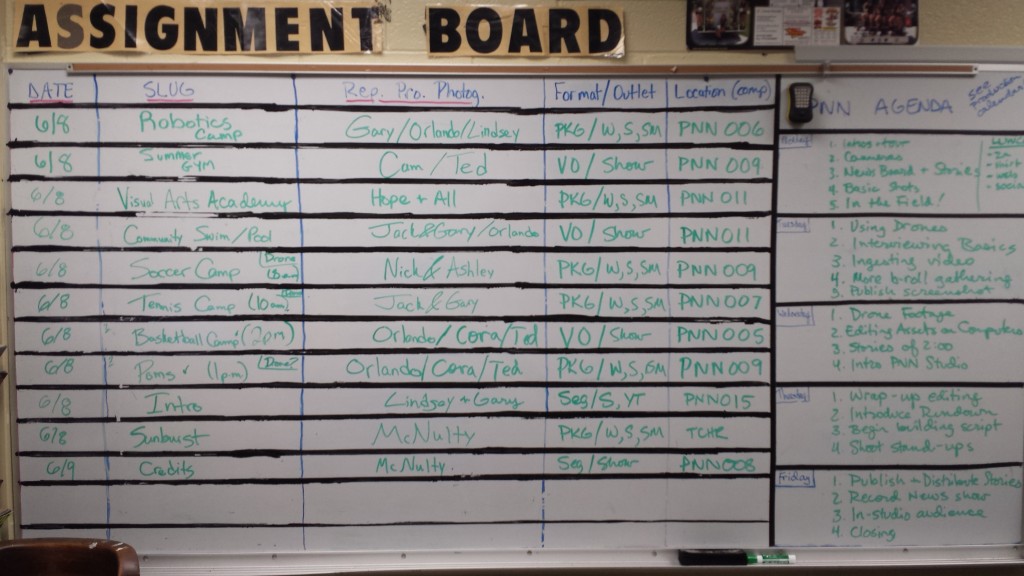 ASSIGNMENT BOARD
DATE SLUG Rep. Pro. Photog. Format/Outlet Location (comp)
6/8 Robotics Camp Gary/Orlando/Lindsey PKG/W,S,SM PNN 006
6/8 Summer Gym Cam/Ted VO/Show PNN 009
6/8 Visual Arts Academy Hope + All PKG/W,S,SM PNN 011
6/8 Community Swim/Pool Jack&Gary/Orlando VO/Show PNN011
6/8 Soccer Camp Drone Nick & Ashley PKG/W,S,SM PNN 009
6/8 Tennis Camp (10am) Jack & Gary PKG/W,S,SM PNN 007
6/8 Basketball Camp (2pm) Orlando/Cora/Ted VO/Show PNN005
6/8 Poms (1pm) Drone? Orlando/Cora/Ted PKG/W,S,SM PNN009
6/8 Intro Lindsey + Gary Seg/S, YT PNN015
6/8 Sunburst McNulty PKG/W,S,SM TCHR
6/9 Credits McNulty Seg/Show PNN008
PNN AGENDA
see production calendar
Monday
1. Intros + tour
2. Cameras
3. News Board + Stories
4. Basic Shots
5. In the Field!
Tuesday
1. Using Drones
2. Interviewing Basics
3. Ingesting video
4. More b-roll gathering
5. Publish screenshot
Wednesday
1. Drone Footage
2. Editing Assets on Computers
3. Stories of 2:00
4. Intro PNN Studio
Thursday
1. Wrap-up editing
2. Introduce Rundown
3. Begin building script
4. Shoot stand-ups
Friday
1. Publish + Distribute Stories
2. Record News show
3. In-studio audience
4. Closing